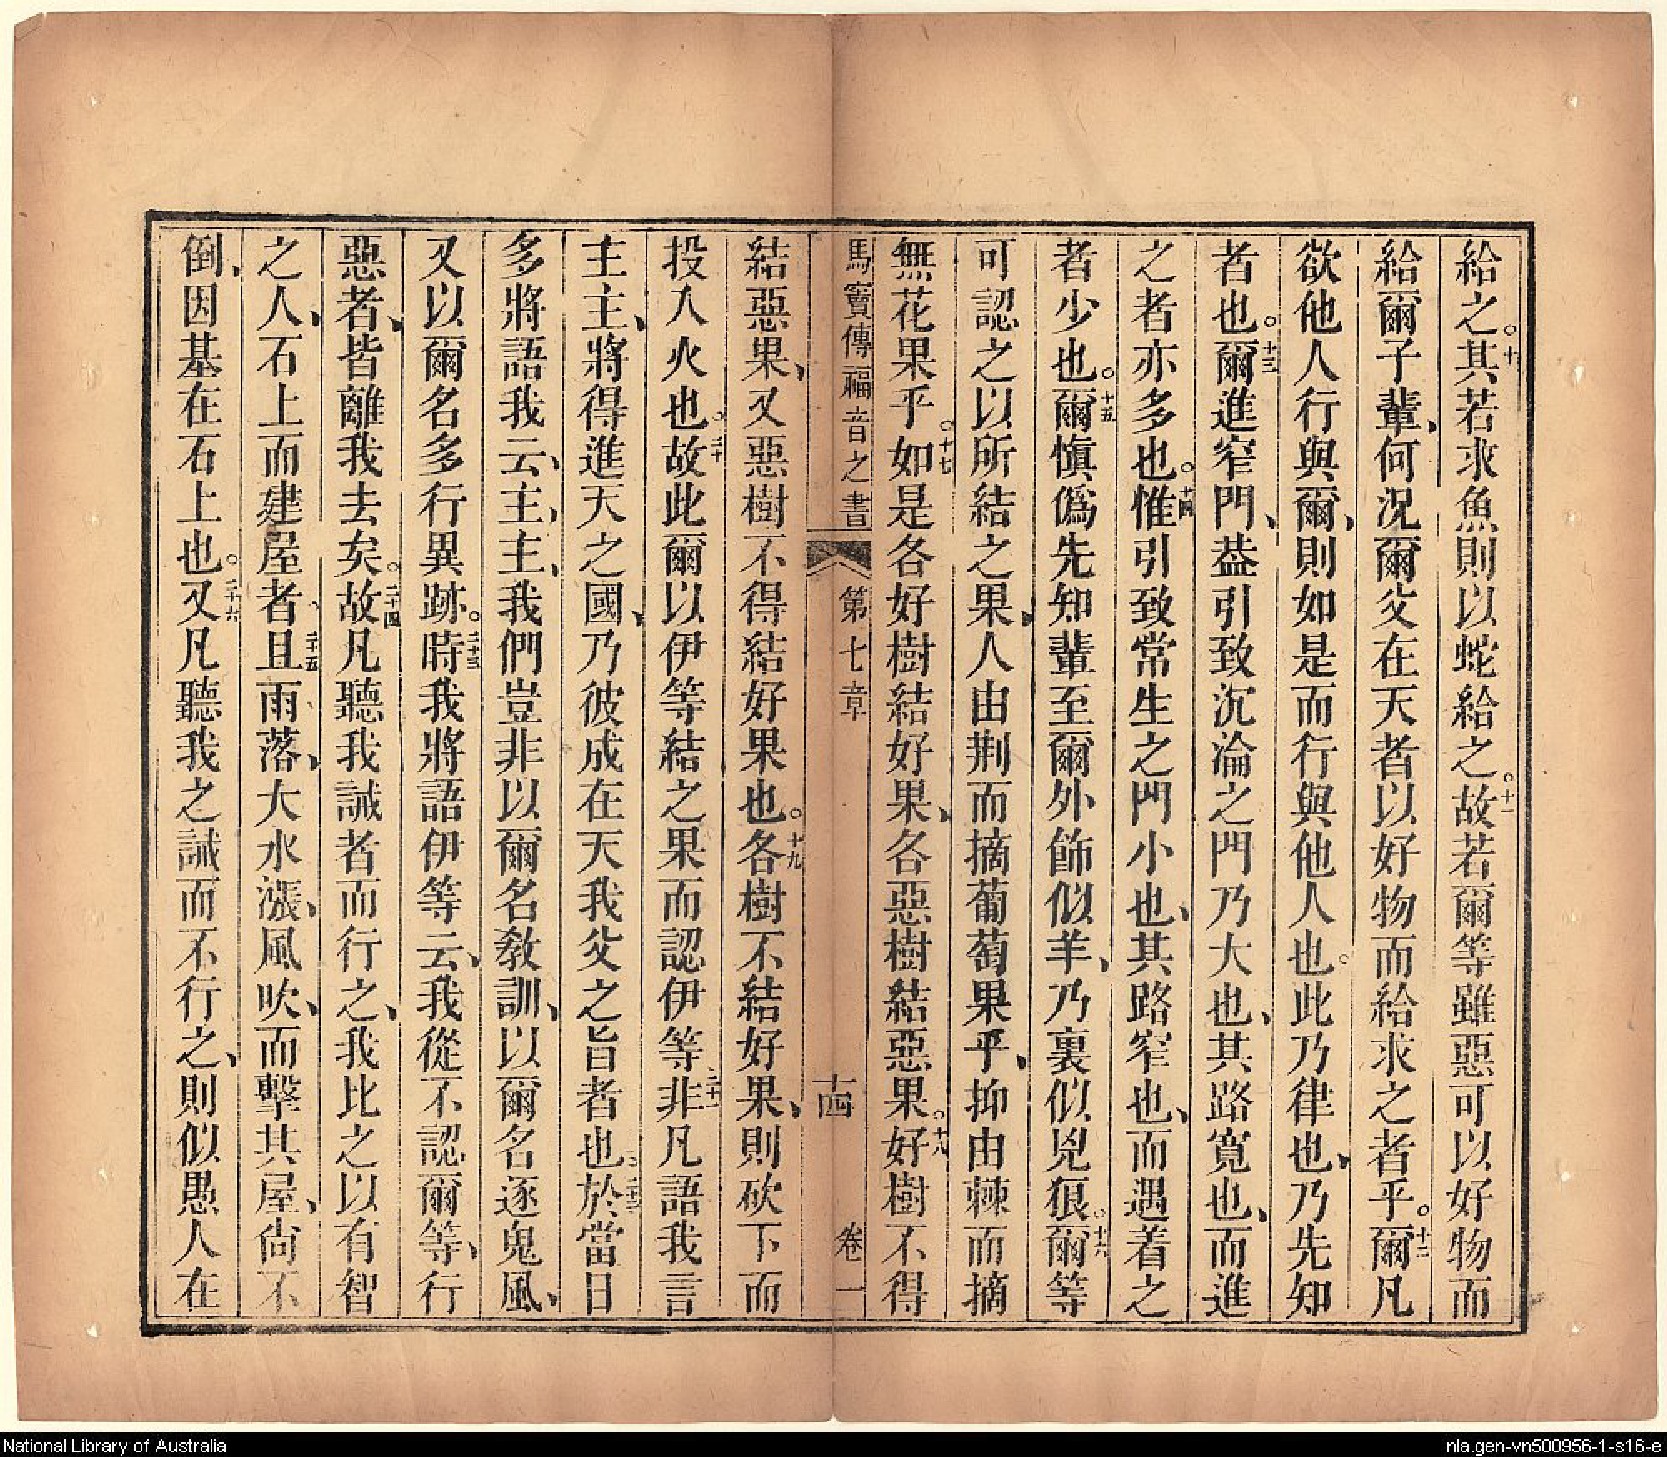 給之。十其若求魚則以蛇給之。十一故若爾等雖惡可以好物而
給爾子輩、何況爾父在天者以好物而給求之者乎。十二爾凡
欲他人行與爾、則如是而行與他人也。此乃律也、乃先知
者也。十三爾進窄門、葢引致沉淪之門乃大也、其路寬也、而進
之者亦多也。十四惟引致常生之門小也、其路窄也、而遇着之
者少也。十五爾愼僞先知輩至爾外飾似羊、乃裏似兇狼。十六爾等
可認之以所結之果、人由荆而摘葡萄果乎、抑由棘而摘
無花果乎。十七如是各好樹結好果、各惡樹結惡果。十八好樹不得
馬竇傳福音之書 第七章 十四 卷一
結惡果、又惡樹不得結好果也。十九各樹不結好果、則砍下而
投入火也。二十故此爾以伊等結之果而認伊等。二十一非凡語我言
主主、將得進天之國、乃彼成在天我父之旨者也。二十二於當日
多將語我云、主、主、我們豈非以爾名教訓、以爾名逐鬼風、
又以爾名多行異跡。二十三時我將語伊等云、我從不認爾等、行
惡者、皆離我去矣。二十四故凡聽我誡者而行之、我比之以有智
之人、石上而建屋者、二十五且雨落、大水漲、風吹、而擊其屋、尙不
倒、因基在石上也。二十六又凡聽我之誡而不行之、則似愚人在
National Library of Australia
nla.gen-vn500956-1-s16-e